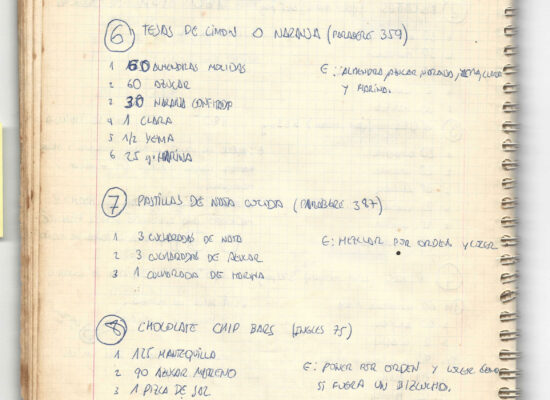 6 TEJAS DE LIMON O NARANJA (PARABERE 359)
1 60 ALMENDRAS MOLIDAS
E: ALMENDRA, AZUCAR, NARANJA, YEMA, CLARA
Y HARINA.
2 60 AZUCAR
2 30 NARANJA CONFITADA
4 1 CLARA
5 1/2 YEMA
6 25 gr HARINA
7 PASTILLAS DE NATA COCIDA (PARABERE 387)
1 3 CUCHARADAS DE NATA
E: MEZCLAR POR ORDEN Y COCER
2 3 CUCHARADAS DE AZUCAR
3 1 CUCHARADA DE HARINA
8 CHOCOLATE CHIP BARS (INGLES 75)
1 125 MANTEQUILLA
E: PONER POR ORDEN Y COCER COMO
2 90 AZUCAR MORENO
SI FUERA UN BIZCOCHO.
3 1 PIZCA DE SAL